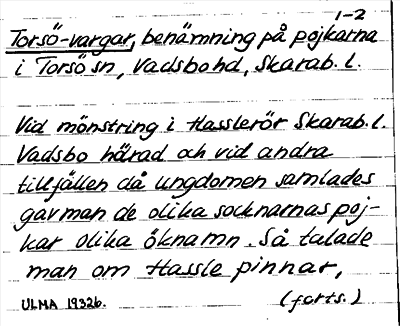 1-2
Torsö-vargar, benämning på pojkarna
i Torsö sn, Vadsbo hd, Skarab. l.
Vid mönstring i Hasslerör Skarab. l.
Vadsbo härad och vid andra
tillfällen då ungdomen samlades
gav man de olika socknarnas poj-
kar olika öknamn. Så talade
man om Hassle pinnar,
ULMA 19326. (forts.)